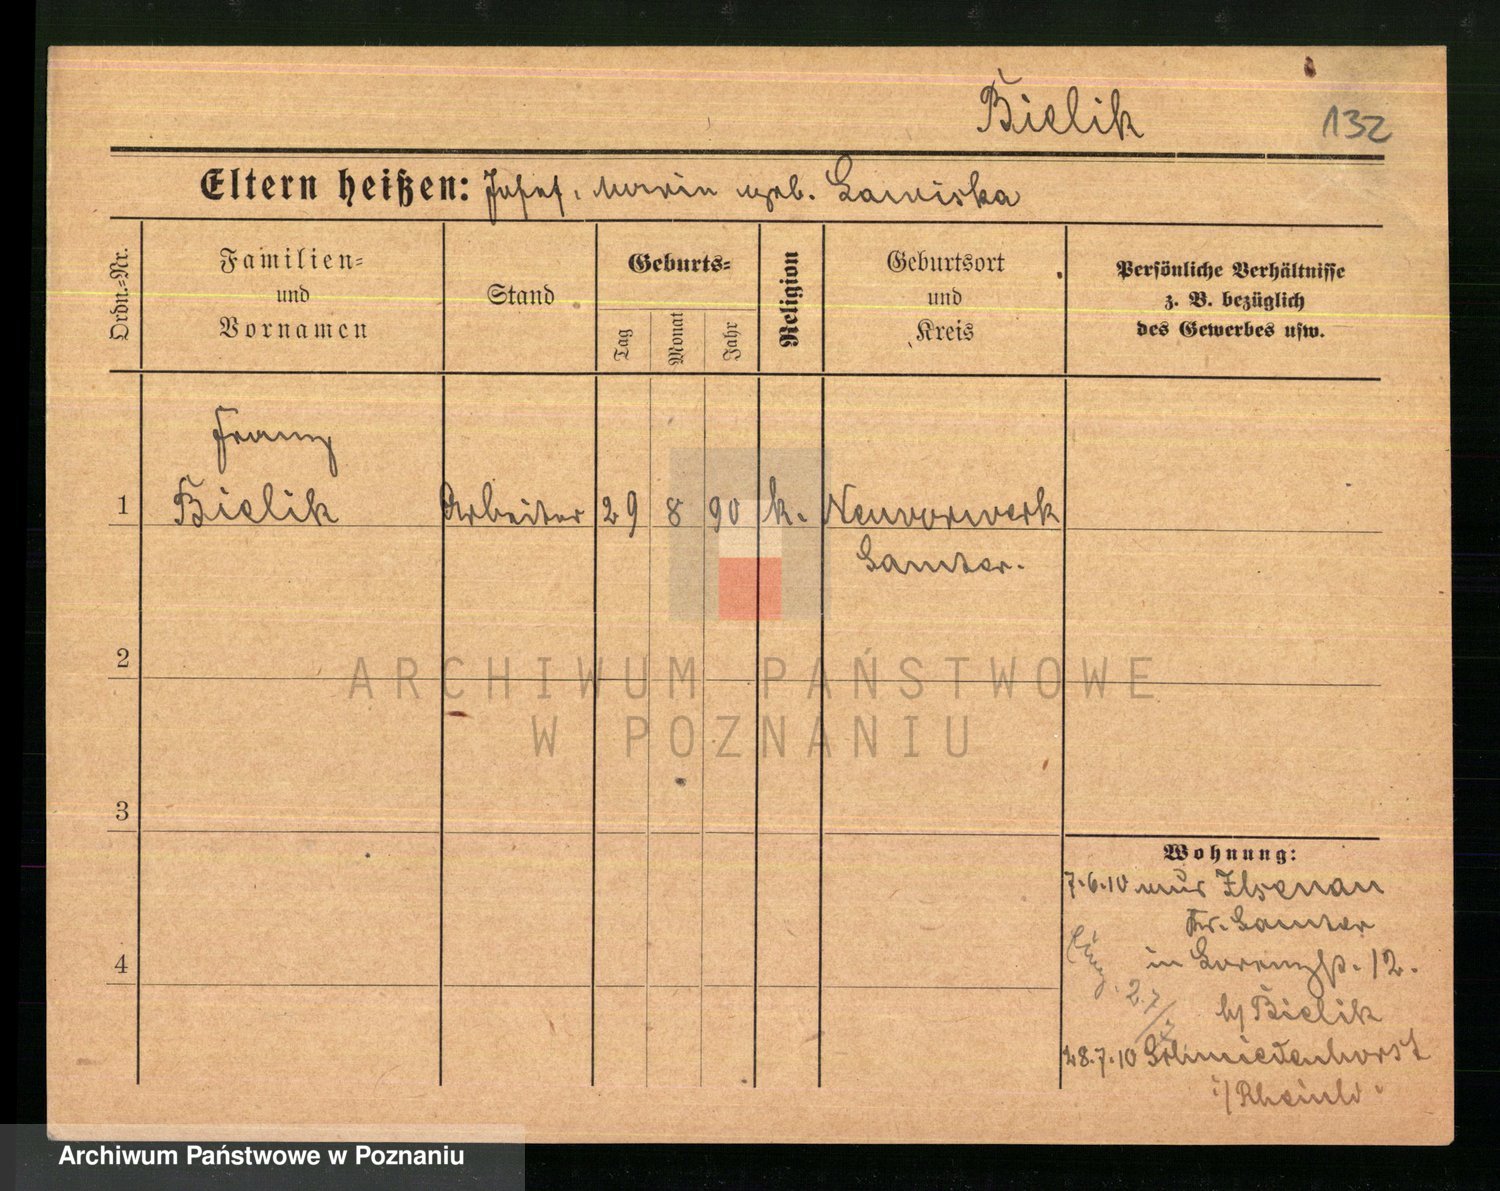 Bielik
132
Eltern heißen: Josef, Maria geb.
Ordn.=Nr.
Familien=
und
Vornamen
Stand
Geburts=
Tag
Monat
Jahr
Religion
Geburtsort
und
Kreis
Persönliche Verhältnisse
z. B. bezüglich
des Gewerbes usw.
Franz
1 Bielik Arbeiter 29 8 90 k. Neuvorwerk
Samter.
2
3
4
ARCHIWUM PAŃSTWOWE
W POZNANIU
Wohnung:
7.6.10 aus
Kr. Samter
in Lorenzstr. 12.
b/ Bielik
28.7.10
i/ Rheinld.
Archiwum Państwowe w Poznaniu